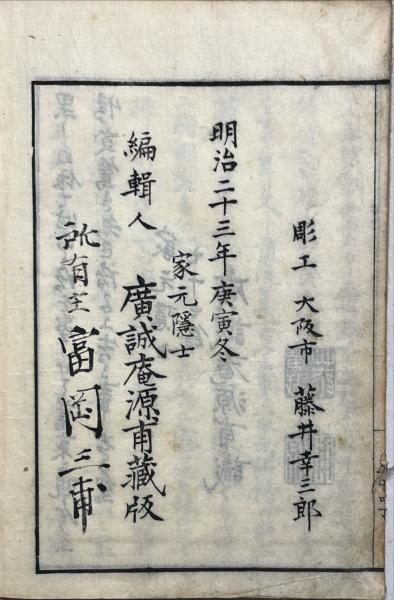 彫工 大阪市 藤井幸三郎
明治二十三年庚寅冬
家元隱士
編輯人 廣誠庵源甫藏版
所有主 富岡三甫